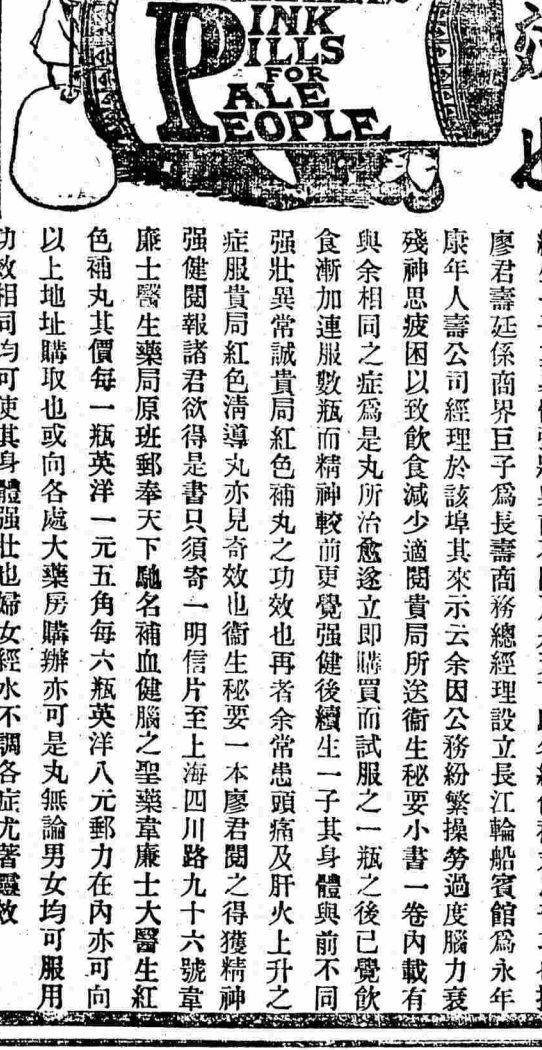 PINK
PILLS
FOR
PALE
PEOPLE
效
也
廖君壽廷係商界巨子爲長壽商務總經理設立長江輪船賓館爲永年
康年人壽公司經理於該埠其來示云余因公務紛繁操勞過度腦力衰
殘神思疲困以致飲食減少適閱貴局所送衞生秘要小書一卷內載有
與余相同之症爲是丸所治愈遂立即購買而試服之一瓶之後已覺飲
食漸加連服數瓶而精神較前更覺强健後續生一子其身體與前不同
强壯異常誠貴局紅色補丸之功效也再者余常患頭痛及肝火上升之
症服貴局紅色淸導丸亦見奇效也衞生秘要一本廖君閱之得獲精神
强健閱報諸君欲得是書只須寄一明信片至上海四川路九十六號韋
廉士醫生藥局原班郵奉天下馳名補血健腦之聖藥韋廉士大醫生紅
色補丸其價每一瓶英洋一元五角每六瓶英洋八元郵力在內亦可向
以上地址購取也或向各處大藥房購辦亦可是丸無論男女均可服用
功效相同均可使其身體强壯也婦女經水不調各症尤著靈效